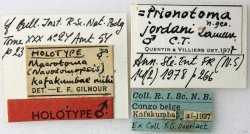 ♂ Bull. Inst. R. Sc. Nat. Belg
Tome XXX n° 27 Ant. 51
p. 23
HOLOTYPE ♂
Macrotoma
(Navosomopsis)
Kafakumbae
DET.-E. F. GILMOUR
HOLOTYPE ♂
Prionotoma
n. gen.
jordani Lameere
♂ C.T.
QUENTIN & VILLIERS det. 197
Ann. Sle. Ent. Fr. (N.S)
1978 p 266
Coll. R. I. Sc. N. B.
Congo belge
Kafakumba xi-1937
Ex Coll. F.G. Overlaet